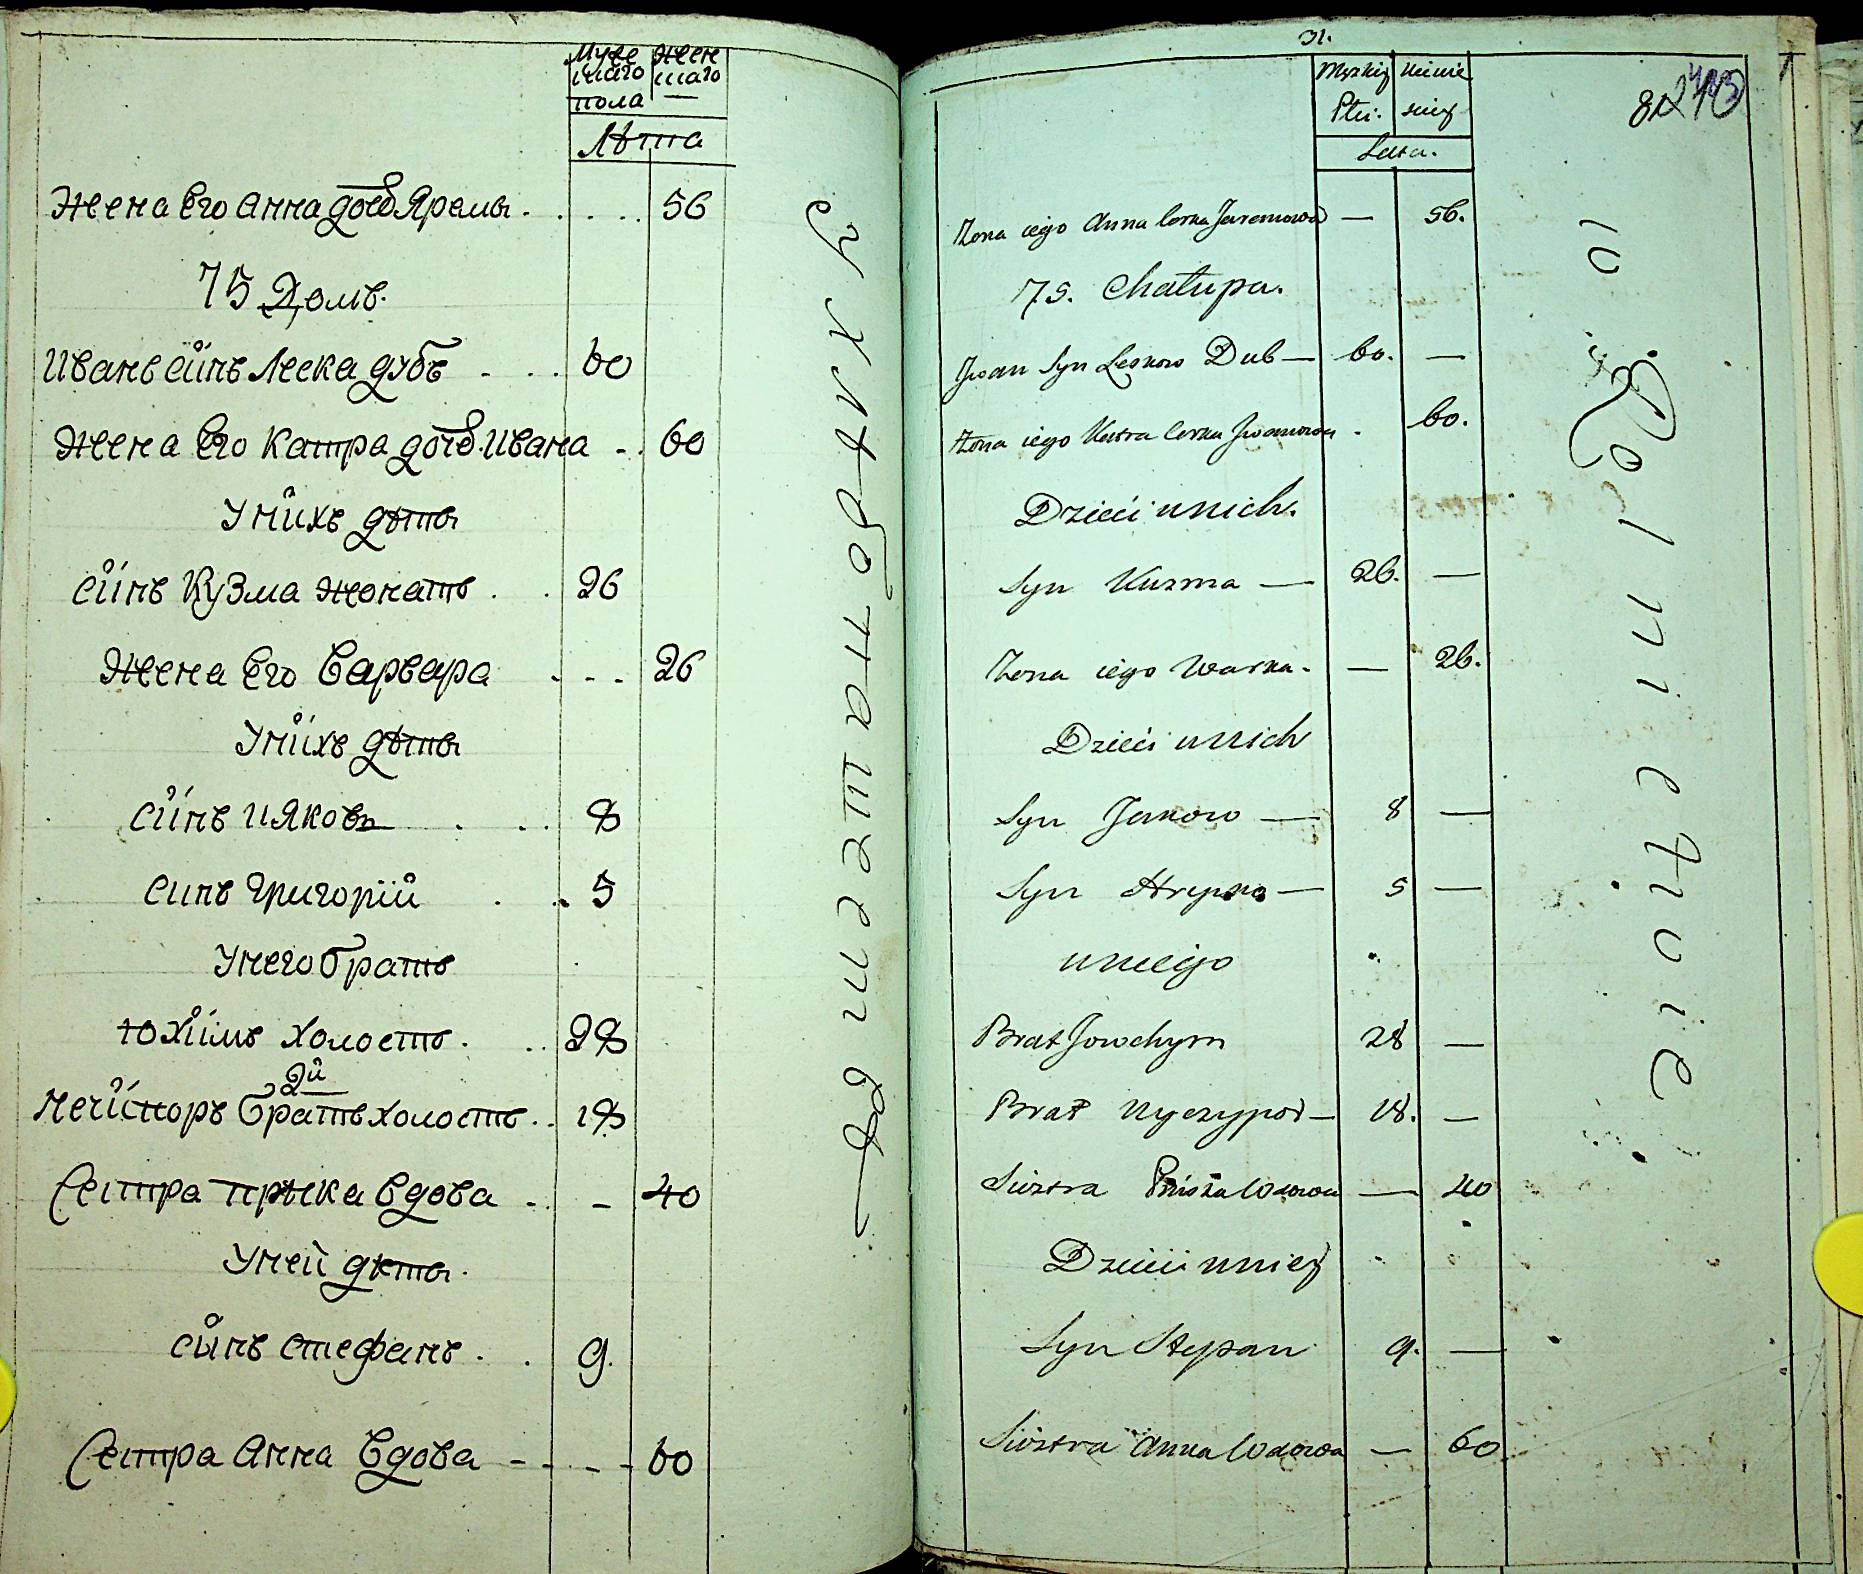 Муже Жен
скаго скаго
пола —
Лѣта
Жена Его Анна дочь Яремы. . . . . 56
75 Домъ.
Иванъ сынъ Леска дубъ - . . 60
Жена Его Катра дочь Ивана - . 60
У нихъ дѣты
сынъ Кузма жонатъ . . 26
Жена Его Варвара . - - 26
У нихъ дѣты
сынъ Ияковъ . . . 8
синъ Григорій . . 5
У него братъ
Юхимъ холостъ . . . 28
2й
Нечипоръ братъ холостъ . . 18
Сестра Прѣска Вдова - . - 40
У ней дѣты.
сынъ Стефанъ . . 9.
Сестра Анна Вдова - - - - 60
у хлѣбопашцевъ
31.
Męzkiey Żenie
Płci. skiey
Lata.
Żona iego Anna Corka Jaremowa — 56.
75. Chałupa.
Jwan Syn Leskow Dub — 60. —
Żona iego Katra Corka Jwanowa . 60.
Dzieci u nich.
Syn Kuzma — 26. —
Żona iego Warka. — 26.
Dzieci u nich
Syn Jakow — 8 —
Syn Hryńko — 5 —
u niego
Brat Jowchym 28 —
Brat Nyczypor — 18. —
Siostra Pryśka Wdowa — 40
Dzieci u niey
Syn Stepan 9. —
Siostra Anna Wdowa — 60.
10
Rolnictwie